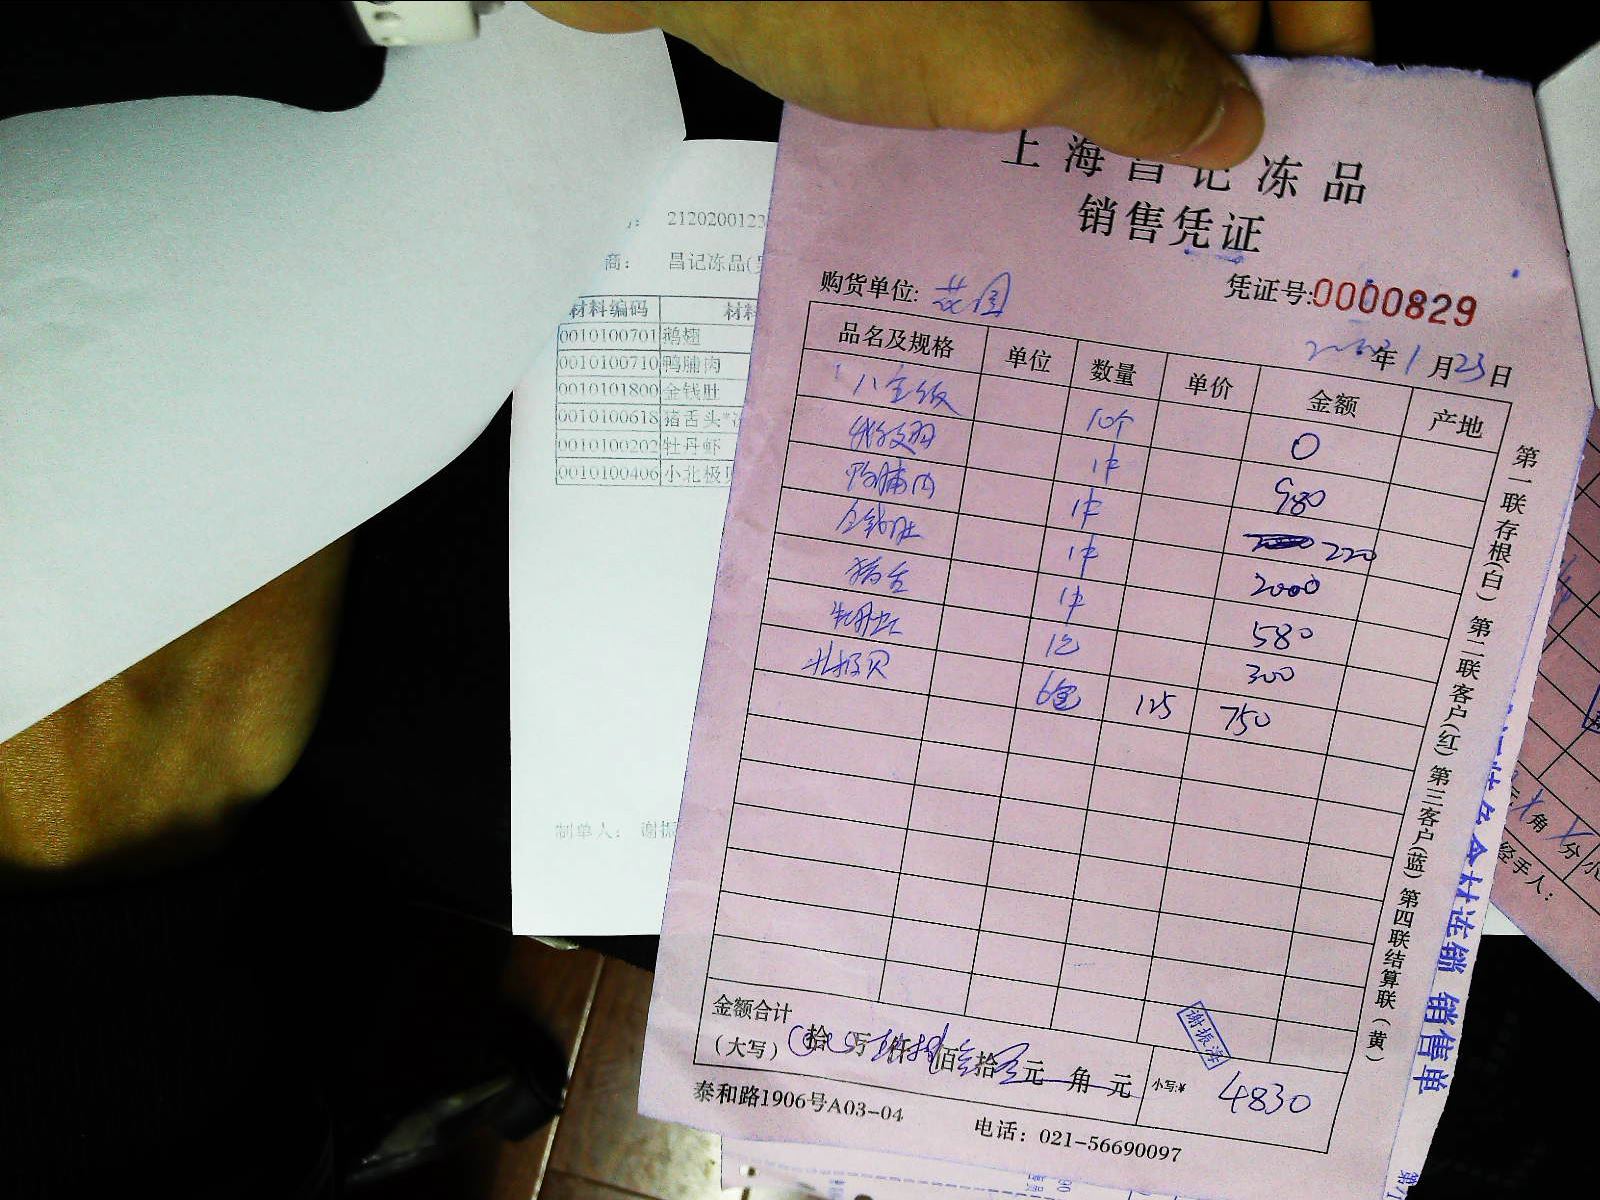 上海昌记冻品
销售凭证
购货单位: 花园
凭证号:0000829
年1月23日
品名及规格 单位 数量 单价 金额 产地
八宝饭 10个 0
鹅翅 1件 980
鸭脯肉 1件 220
金钱肚 1件 2000
猪舌 1件 580
牡丹虾 1包 300
北极贝 6包 125 750
金额合计
(大写) 拾 万 仟 佰 拾 元 角 元
小写:¥ 4830
谢振涛
泰和路1906号A03-04
电话: 021-56690097
第一联存根(白) 第二联客户(红) 第三客户(蓝) 第四联结算联(黄)
2120200123
商: 昌记冻品(
材料编码 材料
0010100701 鹅翅
0010100710 鸭脯肉
0010101800 金钱肚
0010100618 猪舌头
0010100202 牡丹虾
0010100406 小北极贝
制单人: 谢振
材连锁 销售单
角 分
经手人: